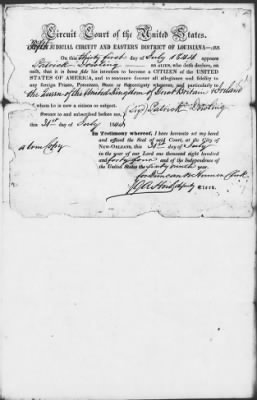 Circuit Court of the United States.
Fifth JUDICIAL CIRCUIT AND EASTERN DISTRICT OF LOUISIANA—SS
On this thirty first day of July 1844 appears
Patrick AN ALIEN, who doth declare, on
oath, that it is bona fide his intention to become a CITIZEN OF THE UNITED
STATES OF AMERICA, and to renounce forever all allegiance and fidelity to
any foreign Prince, Potentate, State or Sovereignty whatever, and particularly to
the Queen of the United Kingdom of Great Britain & Ireland
of whom he is now a citizen or subject.
SWORN to and subscribed before me,
(Sgd) Patrick
this 31st day of July 1844
In Testimony whereof, I have hereunto set my hand
and affixed the Seal of said Court, at the City of
a true Copy
NEW-ORLEANS, this 31st day of July
in the year of our Lord one thousand eight hundred
and forty four and of the Independence of
the United States the sixty ninth year.
for Duncan N. Hennen Clerk
deputy CLERK.